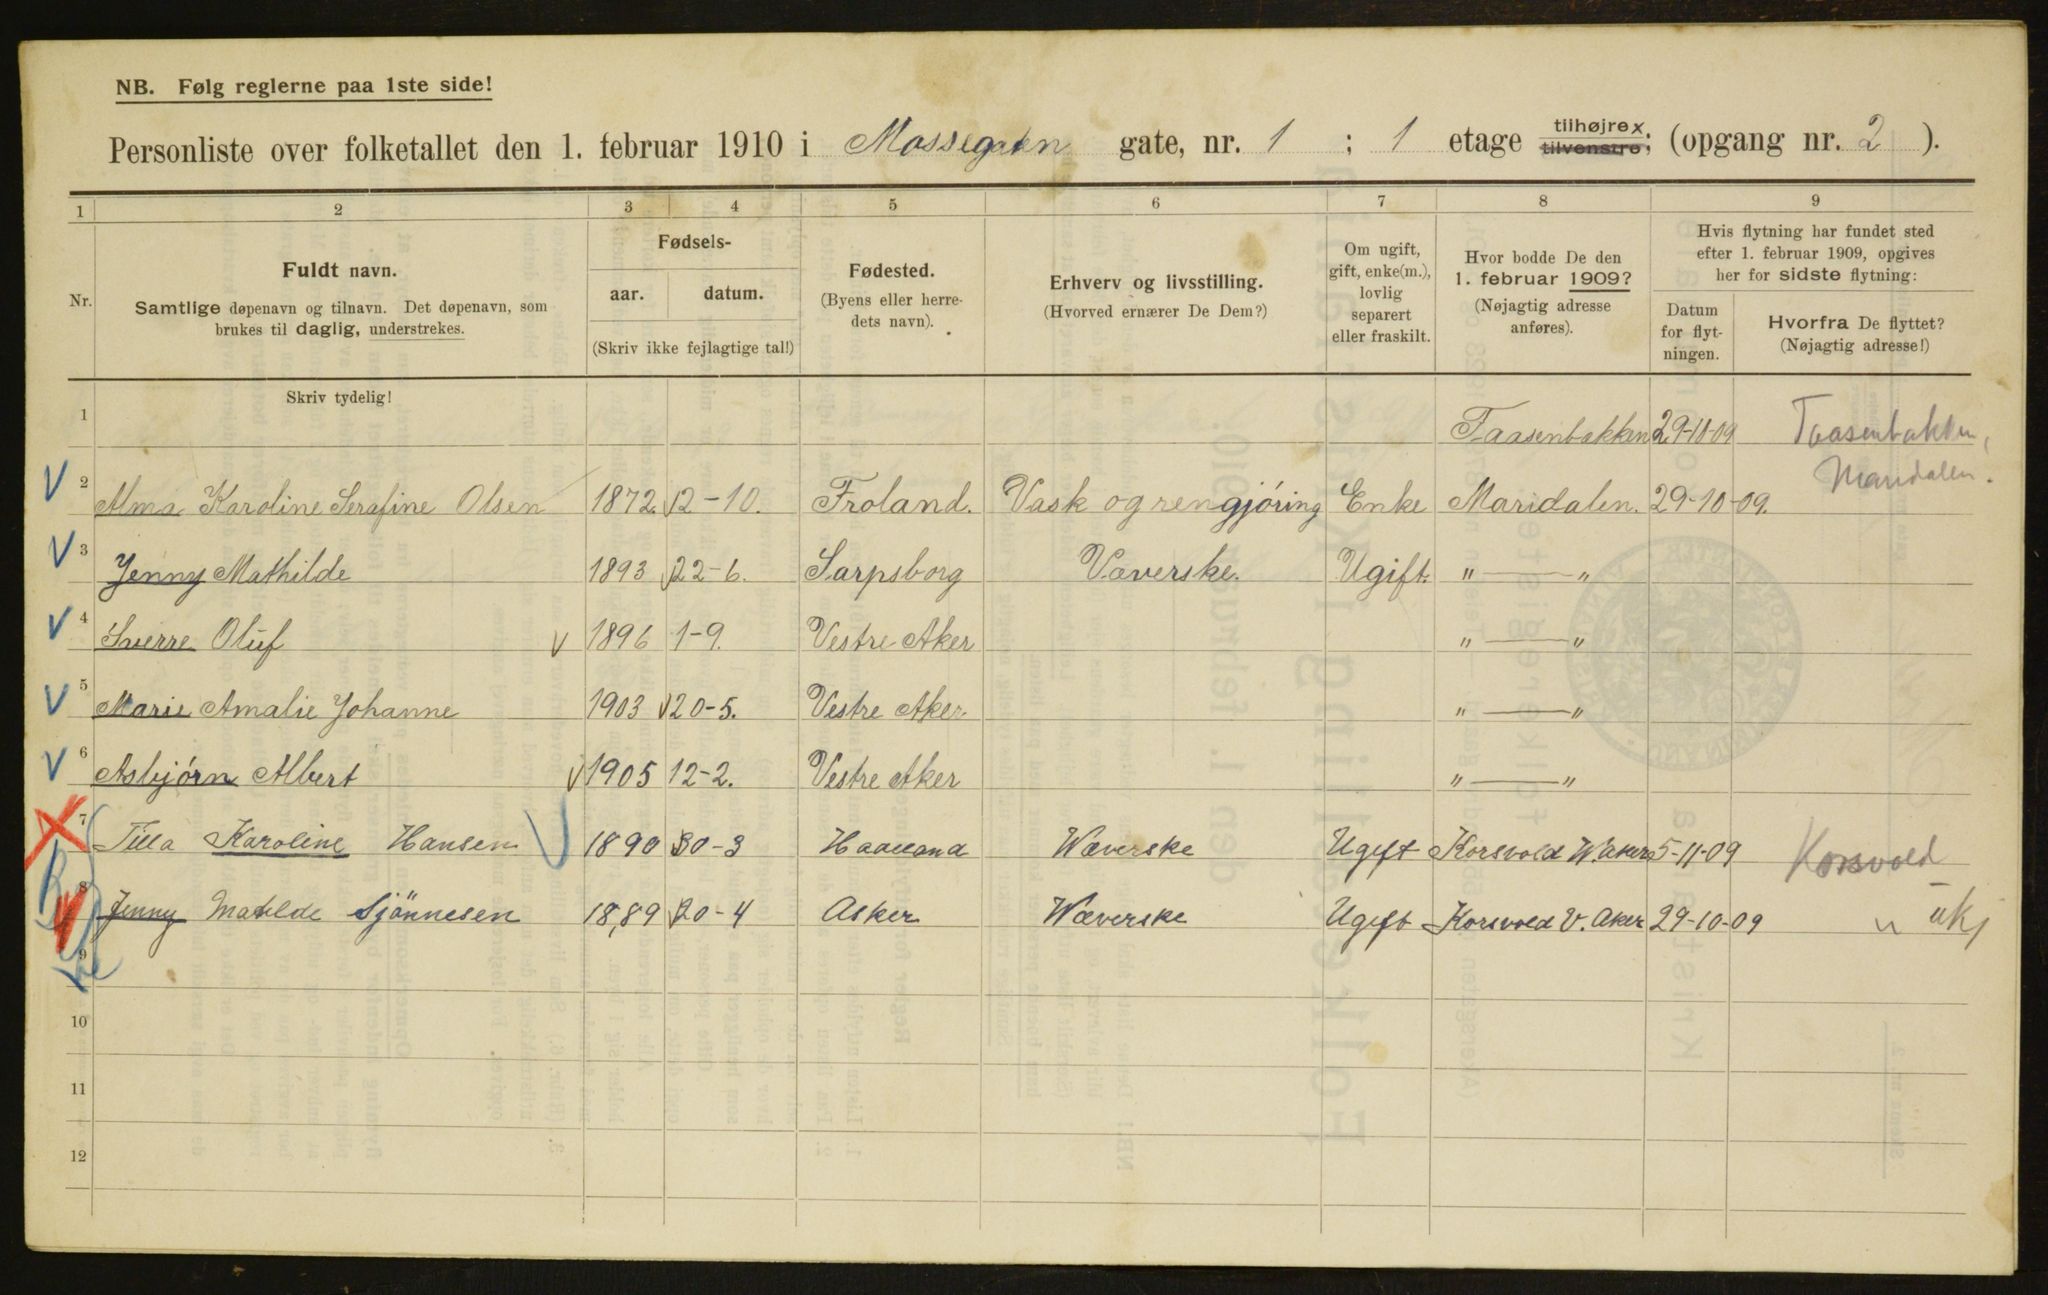 NB. Følg reglerne paa 1ste side!
Personliste over folketallet den 1. februar 1910 i Mossegaten gate, nr. 1 ; 1 etage tilhøjre x tilvenstre; (opgang nr. 2 ).
1 2 3 4 5 6 7 8 9
Nr.
Fuldt navn.
Samtlige døpenavn og tilnavn. Det døpenavn, som
brukes til daglig, understrekes.
Fødsels-
aar. datum.
(Skriv ikke fejlagtige tal!)
Fødested.
(Byens eller herre-
dets navn).
Erhverv og livsstilling.
(Hvorved ernærer De Dem?)
Om ugift,
gift, enke(m.),
lovlig
separert
eller fraskilt.
Hvor bodde De den
1. februar 1909?
(Nøjagtig adresse
anføres).
Hvis flytning har fundet sted
efter 1. februar 1909, opgives
her for sidste flytning:
Datum
for flyt-
ningen.
Hvorfra De flyttet?
(Nøjagtig adresse!)
Skriv tydelig!
1 Taasenbakken 29-10-09 Taasenbakken,
Maridalen.
2 Alma Karoline Serafine Olsen 1872. 12-10. Froland. Vask og rengjöring Enke Maridalen. 29-10-09.
3 Jenny Mathilde 1893 22-6. Sarpsborg Væverske. Ugift. " — "
4 Sverre Oluf 1896 1-9. Vestre Aker " — "
5 Marie Amalie Johanne 1903 20-5. Vestre Aker. " — "
6 Asbjörn Albert 1905 12-2. Vestre Aker " — "
7 Tilla Karoline Hansen 1890 30-3 Wæverske Ugift Korsvold W. Aker 5-11-09 Korsvold
8 Jenny Matilde Sjönnesen 1889 20-4 Asker Wæverske Ugift Korsvold V. Aker 29-10-09 " ukj
9
10
11
12